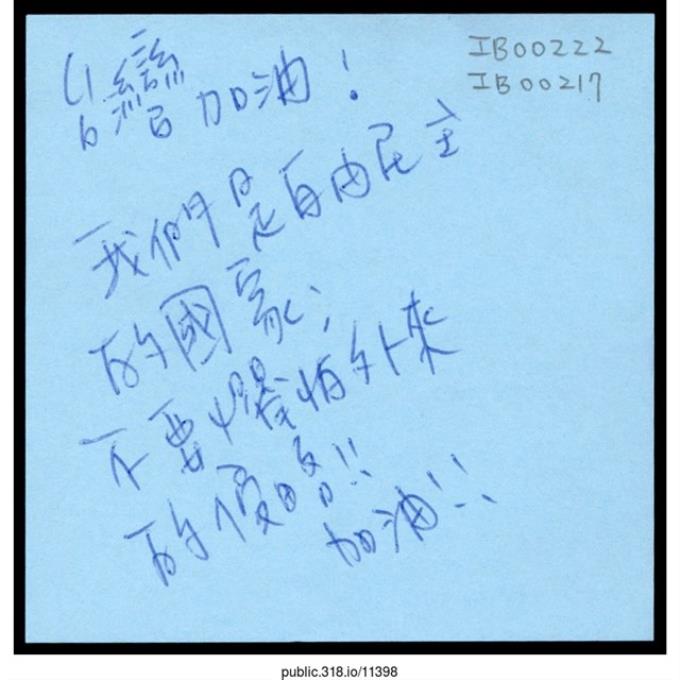 IB00222
IB00217
台灣加油！
我們是自由民主
的國家；
不要懼怕外來
的侵略!!
加油!!
public.318.io/11398